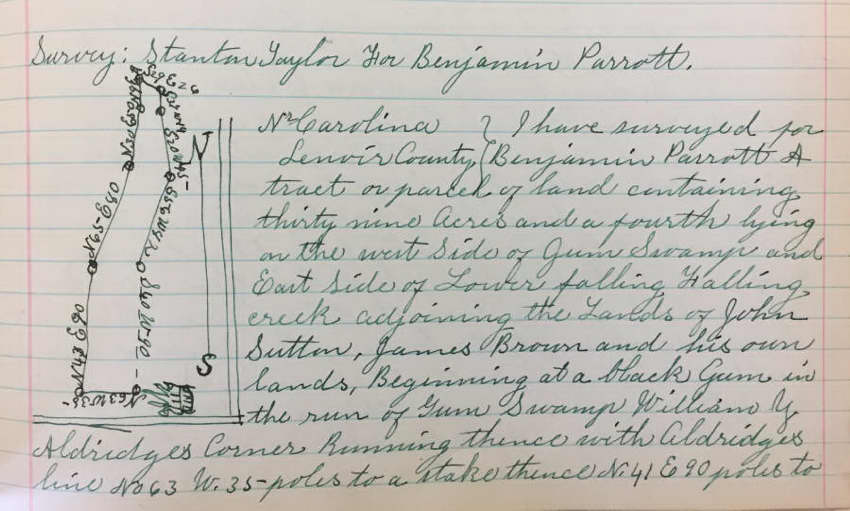 Survey: Stanton Taylor For Benjamin Parrott.
No Carolina } I have surveyed for
Lenoir County, { Benjamin Parrott A
tract or parcel of land containing
thirty nine Acres and a fourth lying
on the west Side of Gum Swamp and
East Side of Lower falling Halling
creek adjoining the Lands of John
Sutton, James Brown and his own
lands, Beginning at a black Gum in
the run of Gum Swamp William Y
Aldridges Corner Running thence with Aldridges
line No 63 W. 35 poles to a stake thence N. 41 E 90 poles to
N
S
S40W50
N63W35